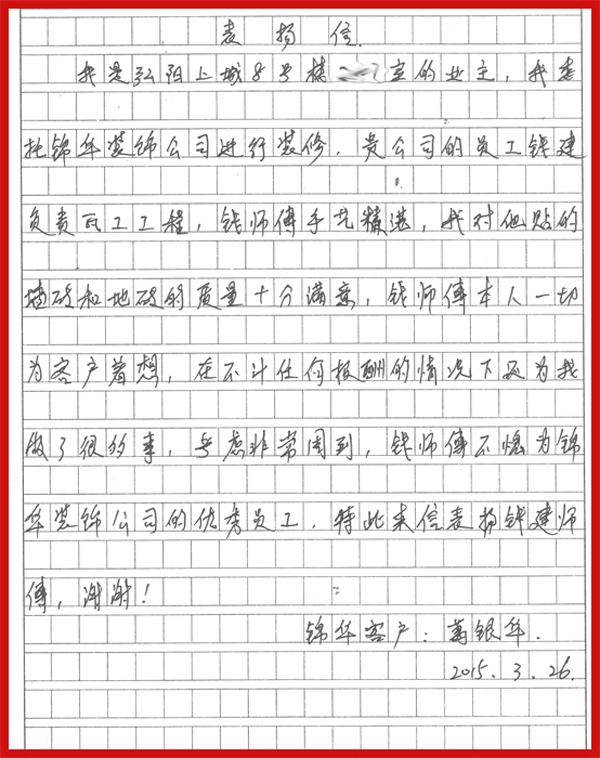 表扬信
我是弘阳上城8号楼 室的业主，我委
托锦华装饰公司进行装修．贵公司的员工钱建
负责瓦工工程，钱师傅手艺精湛，我对他贴的
墙砖和地砖的质量十分满意，钱师傅本人一切
为客户着想，在不计任何报酬的情况下还为我
做了很多事，考虑非常周到，钱师傅不愧为锦
华装饰公司的优秀员工．特此来信表扬钱建师
傅，谢谢！
锦华客户：葛银华．
2015.3.26.